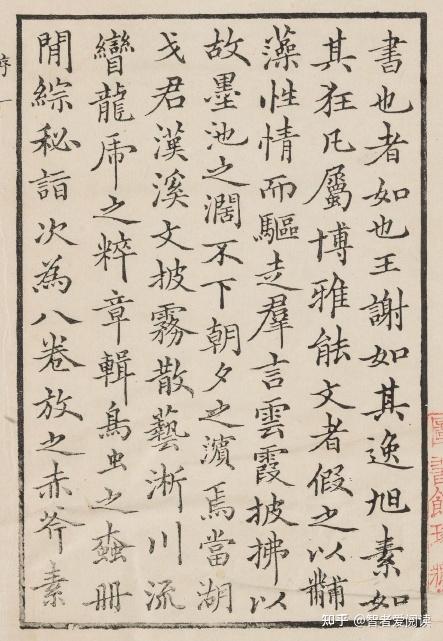 書也者如也王謝如其逸旭素如
其狂凡屬博雅能文者假之以黼
藻性情而驅走羣言雲霞披拂以
故墨池之濶不下朝夕之濵焉當湖
戈君漢溪文披霧散藝淅川流
矕龍乕之粹章輯鳥虫之冊
閒綜秘詣次為八卷放之赤斧素
序一
圖書館
知乎 @智者爱阅读